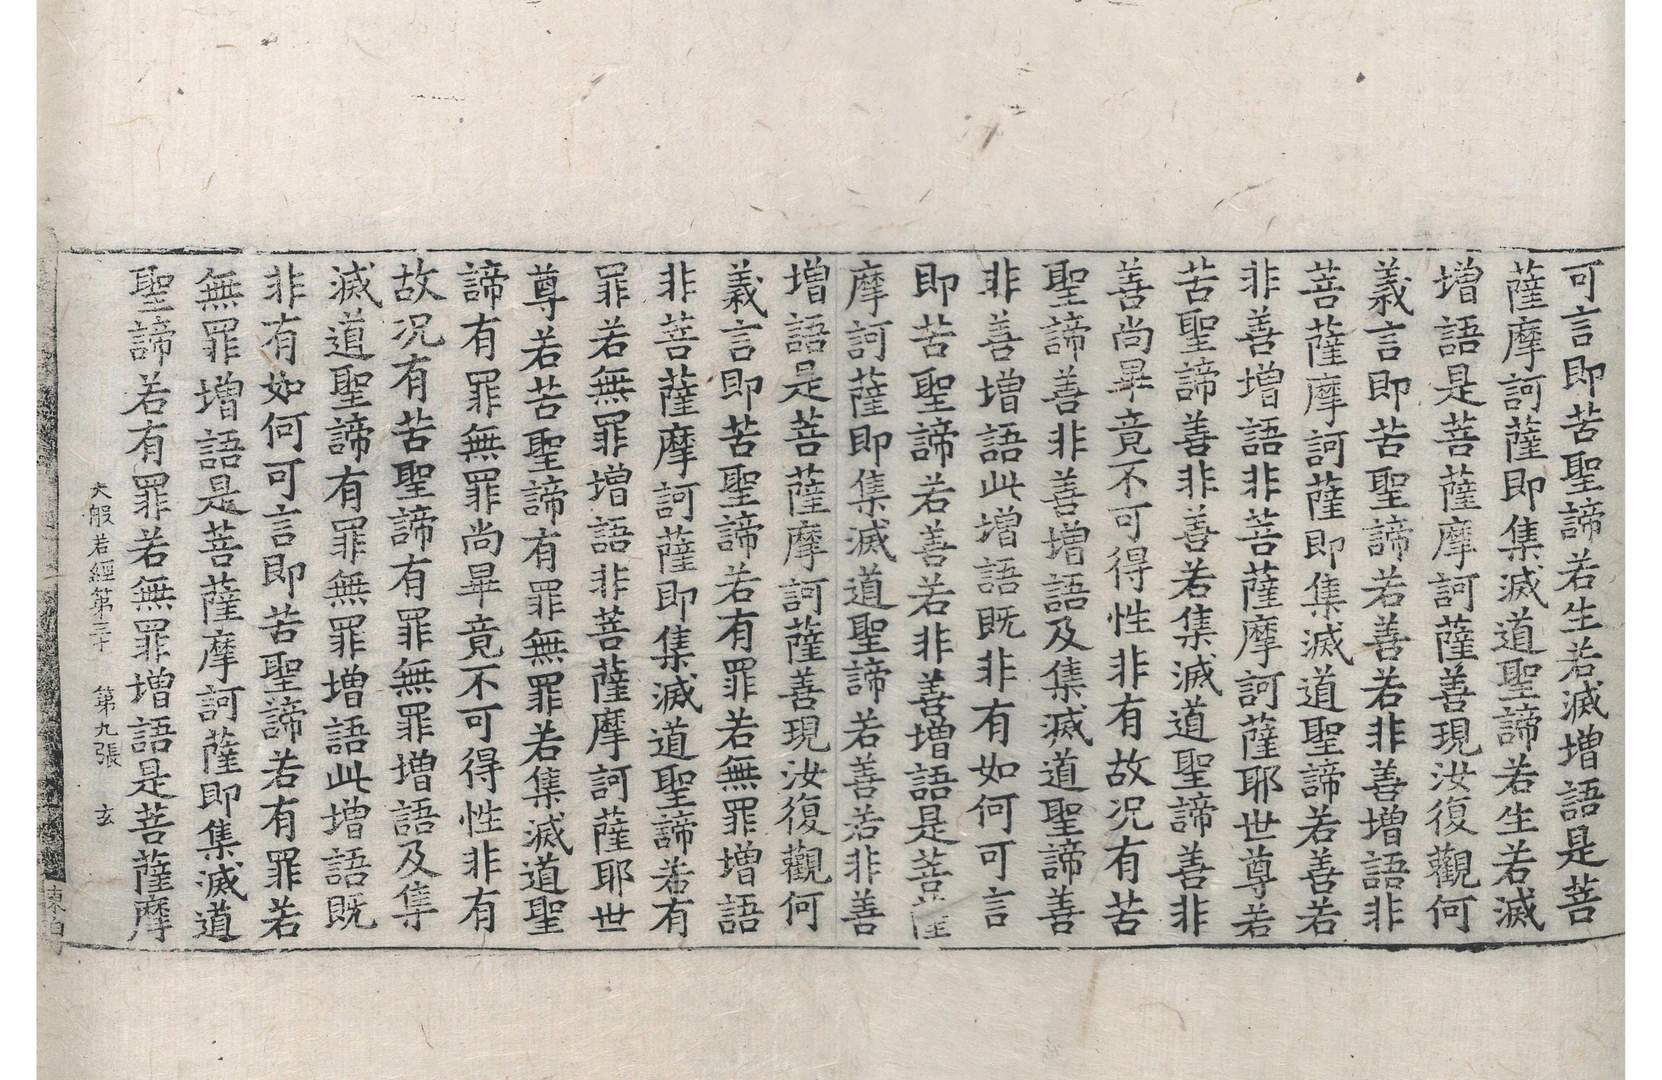 可言即苦聖諦若生若滅增語是菩
薩摩訶薩即集滅道聖諦若生若滅
增語是菩薩摩訶薩善現汝復觀何
義言即苦聖諦若善若非善增語非
菩薩摩訶薩即集滅道聖諦若善若
非善增語非菩薩摩訶薩耶世尊若
苦聖諦善非善若集滅道聖諦善非
善尚畢竟不可得性非有故况有苦
聖諦善非善增語及集滅道聖諦善
非善增語此增語既非有如何可言
即苦聖諦若善若非善增語是菩薩
摩訶薩即集滅道聖諦若善若非善
增語是菩薩摩訶薩善現汝復觀何
義言即苦聖諦若有罪若無罪增語
非菩薩摩訶薩即集滅道聖諦若有
罪若無罪增語非菩薩摩訶薩耶世
尊若苦聖諦有罪無罪若集滅道聖
諦有罪無罪尚畢竟不可得性非有
故况有苦聖諦有罪無罪增語及集
滅道聖諦有罪無罪增語此增語既
非有如何可言即苦聖諦若有罪若
無罪增語是菩薩摩訶薩即集滅道
聖諦若有罪若無罪增語是菩薩摩
大般若經第三十 第九張 玄